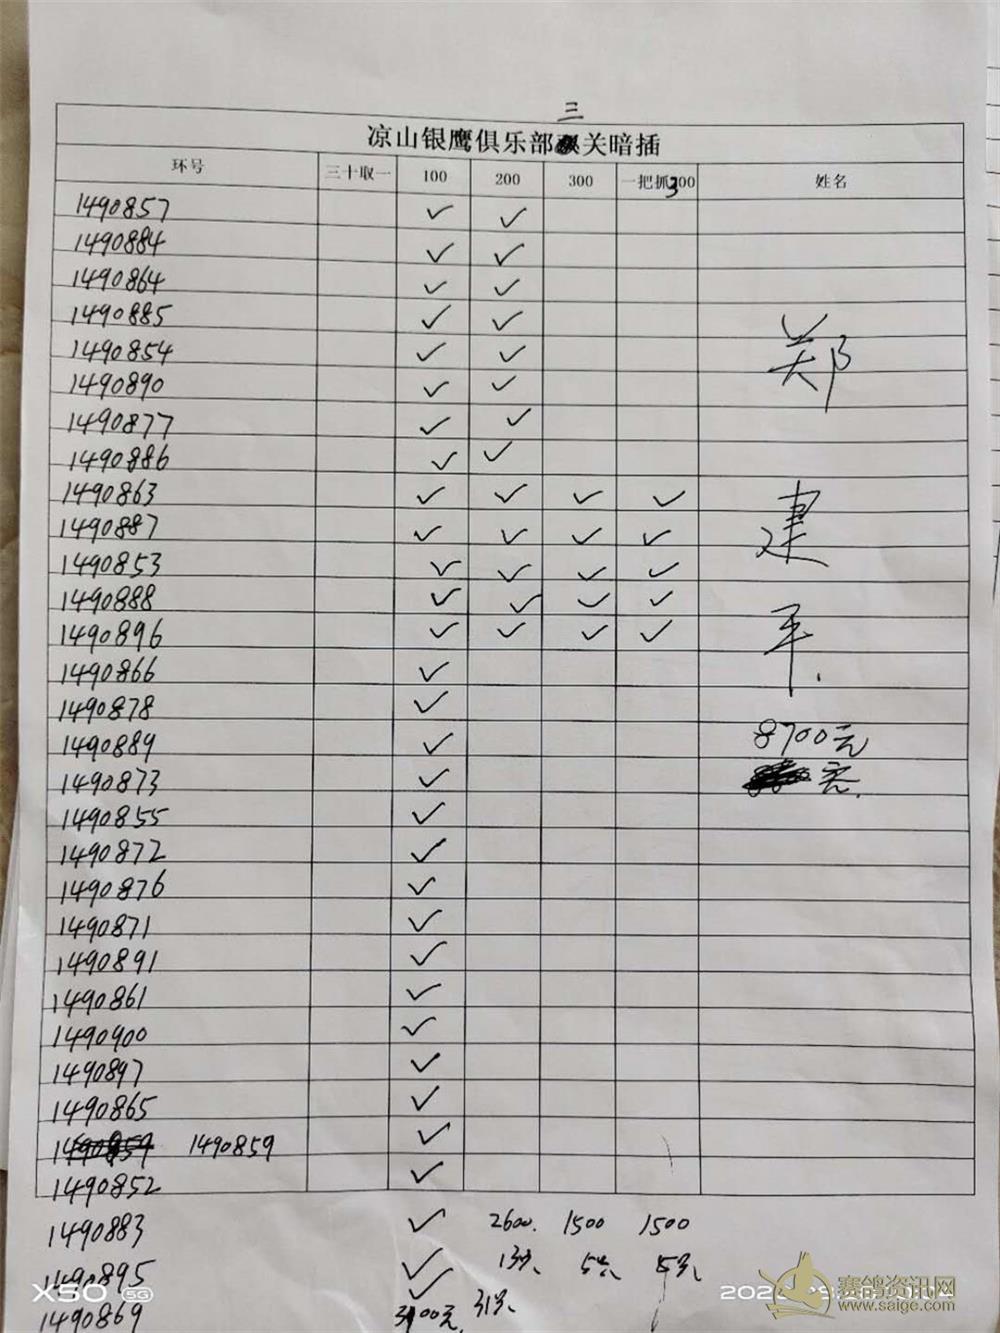 三
凉山银鹰俱乐部关暗插
环号 三十取一 100 200 300 一把抓300 姓名
1490857 ✓ ✓
1490884 ✓ ✓
1490864 ✓ ✓
1490885 ✓ ✓
1490854 ✓ ✓
1490890 ✓ ✓
1490877 ✓ ✓
1490886 ✓ ✓
1490863 ✓ ✓ ✓ ✓
1490887 ✓ ✓ ✓ ✓
1490853 ✓ ✓ ✓ ✓
1490888 ✓ ✓ ✓ ✓
1490896 ✓ ✓ ✓ ✓
郑建平.
1490866 ✓
1490878 ✓
1490889 ✓ 8700元
1490873 ✓
1490855 ✓
1490872 ✓
1490876 ✓
1490871 ✓
1490891 ✓
1490861 ✓
1490900 ✓
1490897 ✓
1490865 ✓
1490859 ✓
1490852 ✓
1490883 ✓ 2600. 1500 1500
1490895 ✓ 13 5 5
1490869 ✓ 3100元. 31
X50 5G
赛鸽资讯网
www.saige.com